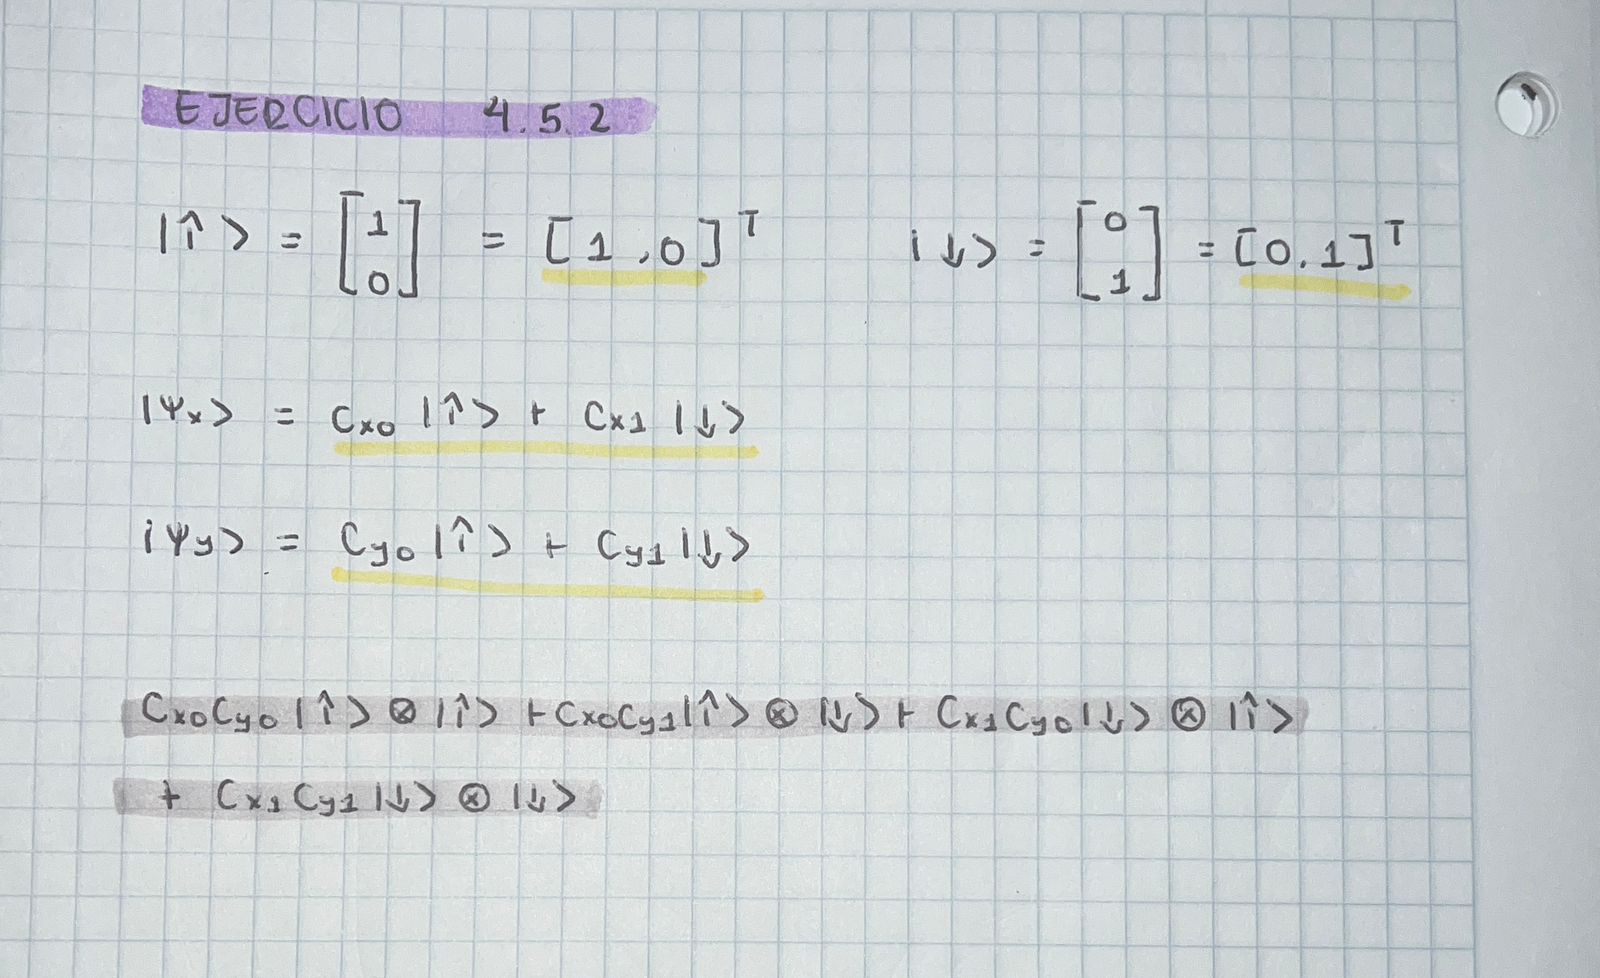 EJERCICIO 4.5.2
|↑⟩ = [1 0] = [1,0]ᵀ |↓⟩ = [0 1] = [0,1]ᵀ
|Ψx⟩ = Cx0 |↑⟩ + Cx1 |↓⟩
|Ψy⟩ = Cy0 |↑⟩ + Cy1 |↓⟩
Cx0Cy0 |↑⟩ ⊗ |↑⟩ + Cx0Cy1 |↑⟩ ⊗ |↓⟩ + Cx1Cy0 |↓⟩ ⊗ |↑⟩
+ Cx1Cy1 |↓⟩ ⊗ |↓⟩